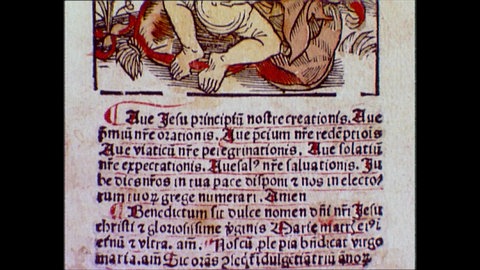 Aue Jesu principiū nostre creationis. Aue
p̄miū nr̄e orationis. Aue p̄cium nr̄e redēptiōis
Aue viaticū nr̄e peregrinationis. Aue solatiū
nr̄e expectationis. Aue sal' nr̄e saluationis. Ju
be dies nr̄os in tua pace disponi et nos in electo-
rum tuoꝝ grege numerari. Amen
Benedictum sit dulce nomen dn̄i nr̄i Jesu
christi et gloriosissime v̓ginis Marie
et vltra. am̄. Nos cū ple pia bn̄dicat virgo
maria. am̄ Sic orās